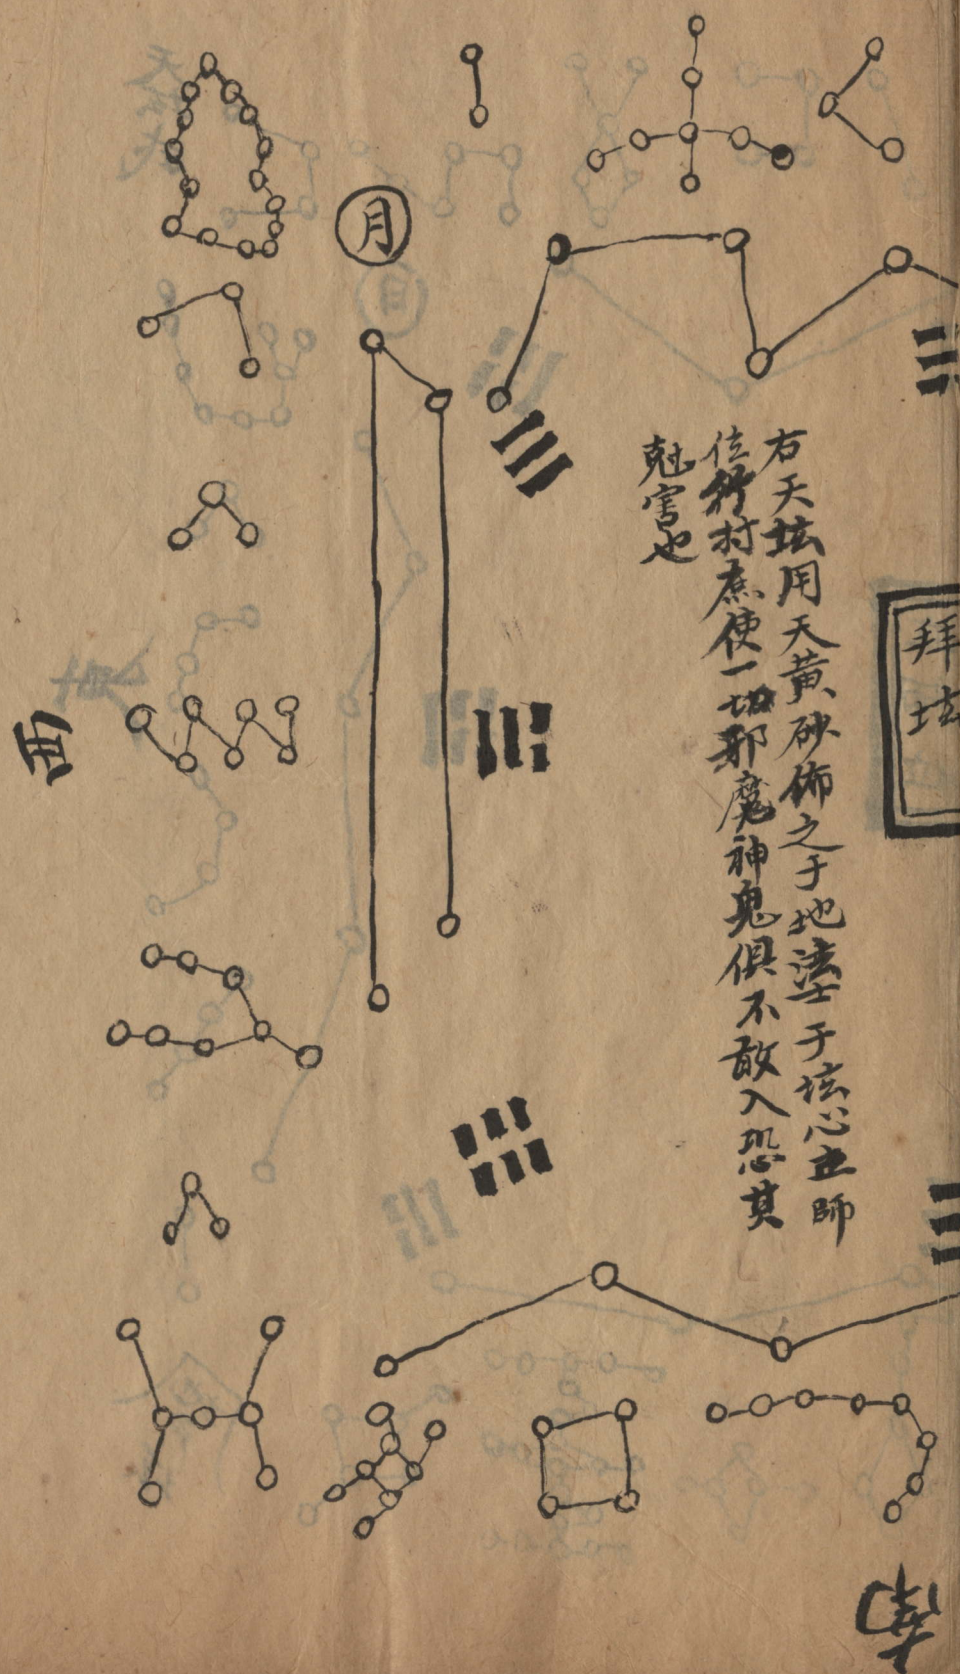 拜坛
右天坛用天黄砂佈之于地法士于坛心立师
位行村庶使一切邪魔神鬼俱不敢入恐其
尅害也
月
西